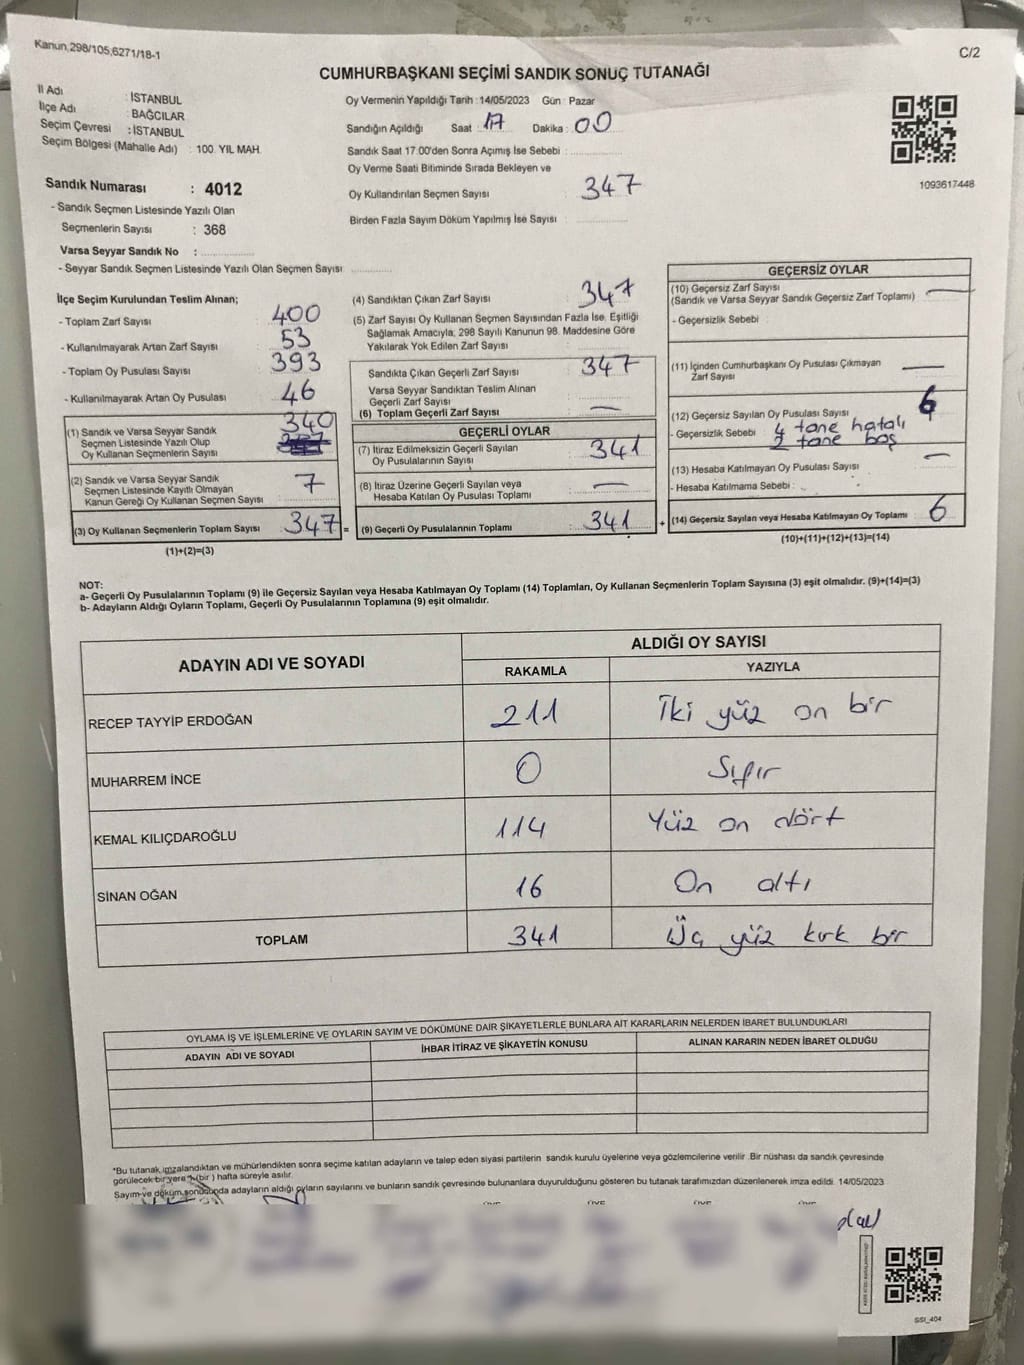 Kanun,298/105,6271/18-1
C/2
CUMHURBAŞKANI SEÇİMİ SANDIK SONUÇ TUTANAĞI
İl Adı : İSTANBUL
İlçe Adı : BAĞCILAR
Seçim Çevresi : İSTANBUL
Seçim Bölgesi (Mahalle Adı) : 100. YIL MAH.
Sandık Numarası : 4012
- Sandık Seçmen Listesinde Yazılı Olan
Seçmenlerin Sayısı : 368
Varsa Seyyar Sandık No :
- Seyyar Sandık Seçmen Listesinde Yazılı Olan Seçmen Sayısı
Oy Vermenin Yapıldığı Tarih :14/05/2023 Gün : Pazar
Sandığın Açıldığı Saat : 17 Dakika : 00
Sandık Saat 17:00'den Sonra Açımış İse Sebebi :
Oy Verme Saati Bitiminde Sırada Bekleyen ve
Oy Kullandırılan Seçmen Sayısı : 347
Birden Fazla Sayım Döküm Yapılmış İse Sayısı :
1093617448
İlçe Seçim Kurulundan Teslim Alınan;
- Toplam Zarf Sayısı : 400
- Kullanılmayarak Artan Zarf Sayısı : 53
- Toplam Oy Pusulası Sayısı : 393
- Kullanılmayarak Artan Oy Pusulası : 46
(1) Sandık ve Varsa Seyyar Sandık 340
Seçmen Listesinde Yazılı Olup
Oy Kullanan Seçmenlerin Sayısı
(2) Sandık ve Varsa Seyyar Sandık
Seçmen Listesinde Kayıtlı Olmayan 7
Kanun Gereği Oy Kullanan Seçmen Sayısı
(3) Oy Kullanan Seçmenlerin Toplam Sayısı 347 =
(1)+(2)=(3)
(4) Sandıktan Çıkan Zarf Sayısı : 347
(5) Zarf Sayısı Oy Kullanan Seçmen Sayısından Fazla İse, Eşitliği
Sağlamak Amacıyla, 298 Sayılı Kanunun 98. Maddesine Göre
Yakılarak Yok Edilen Zarf Sayısı :
Sandıkta Çıkan Geçerli Zarf Sayısı : 347
Varsa Seyyar Sandıktan Teslim Alınan
Geçerli Zarf Sayısı
(6) Toplam Geçerli Zarf Sayısı : —
GEÇERLİ OYLAR
(7) İtiraz Edilmeksizin Geçerli Sayılan
Oy Pusulalarının Sayısı : 341
(8) İtiraz Üzerine Geçerli Sayılan veya
Hesaba Katılan Oy Pusulası Toplamı : —
(9) Geçerli Oy Pusulalarının Toplamı : 341 +
GEÇERSİZ OYLAR
(10) Geçersiz Zarf Sayısı
(Sandık ve Varsa Seyyar Sandık Geçersiz Zarf Toplamı) : —
- Geçersizlik Sebebi :
(11) İçinden Cumhurbaşkanı Oy Pusulası Çıkmayan
Zarf Sayısı : —
(12) Geçersiz Sayılan Oy Pusulası Sayısı : 6
- Geçersizlik Sebebi : 4 tane hatalı
2 tane boş
(13) Hesaba Katılmayan Oy Pusulası Sayısı : —
- Hesaba Katılmama Sebebi :
(14) Geçersiz Sayılan veya Hesaba Katılmayan Oy Toplamı : 6
(10)+(11)+(12)+(13)=(14)
NOT:
a- Geçerli Oy Pusulalarının Toplamı (9) ile Geçersiz Sayılan veya Hesaba Katılmayan Oy Toplamı (14) Toplamları, Oy Kullanan Seçmenlerin Toplam Sayısına (3) eşit olmalıdır. (9)+(14)=(3)
b- Adayların Aldığı Oyların Toplamı, Geçerli Oy Pusulalarının Toplamına (9) eşit olmalıdır.
ADAYIN ADI VE SOYADI
ALDIĞI OY SAYISI
RAKAMLA YAZIYLA
RECEP TAYYİP ERDOĞAN 211 İki yüz on bir
MUHARREM İNCE 0 Sıfır
KEMAL KILIÇDAROĞLU 114 Yüz on dört
SİNAN OĞAN 16 On altı
TOPLAM 341 Üç yüz kırk bir
OYLAMA İŞ VE İŞLEMLERİNE VE OYLARIN SAYIM VE DÖKÜMÜNE DAİR ŞİKAYETLERLE BUNLARA AİT KARARLARIN NELERDEN İBARET BULUNDUKLARI
ADAYIN ADI VE SOYADI İHBAR İTİRAZ VE ŞİKAYETİN KONUSU ALINAN KARARIN NEDEN İBARET OLDUĞU
*Bu tutanak,imzalandıktan ve mühürlendikten sonra seçime katılan adayların ve talep eden siyasi partilerin sandık kurulu üyelerine veya gözlemcilerine verilir .Bir nüshası da sandık çevresinde
görülecek bir yere 1 (bir ) hafta süreyle asılır.
Sayım ve döküm sonucunda adayların aldığı oyların sayılarını ve bunların sandık çevresinde bulunanlara duyurulduğunu gösteren bu tutanak tarafımızdan düzenlenerek imza edildi. 14/05/2023
SSI_404